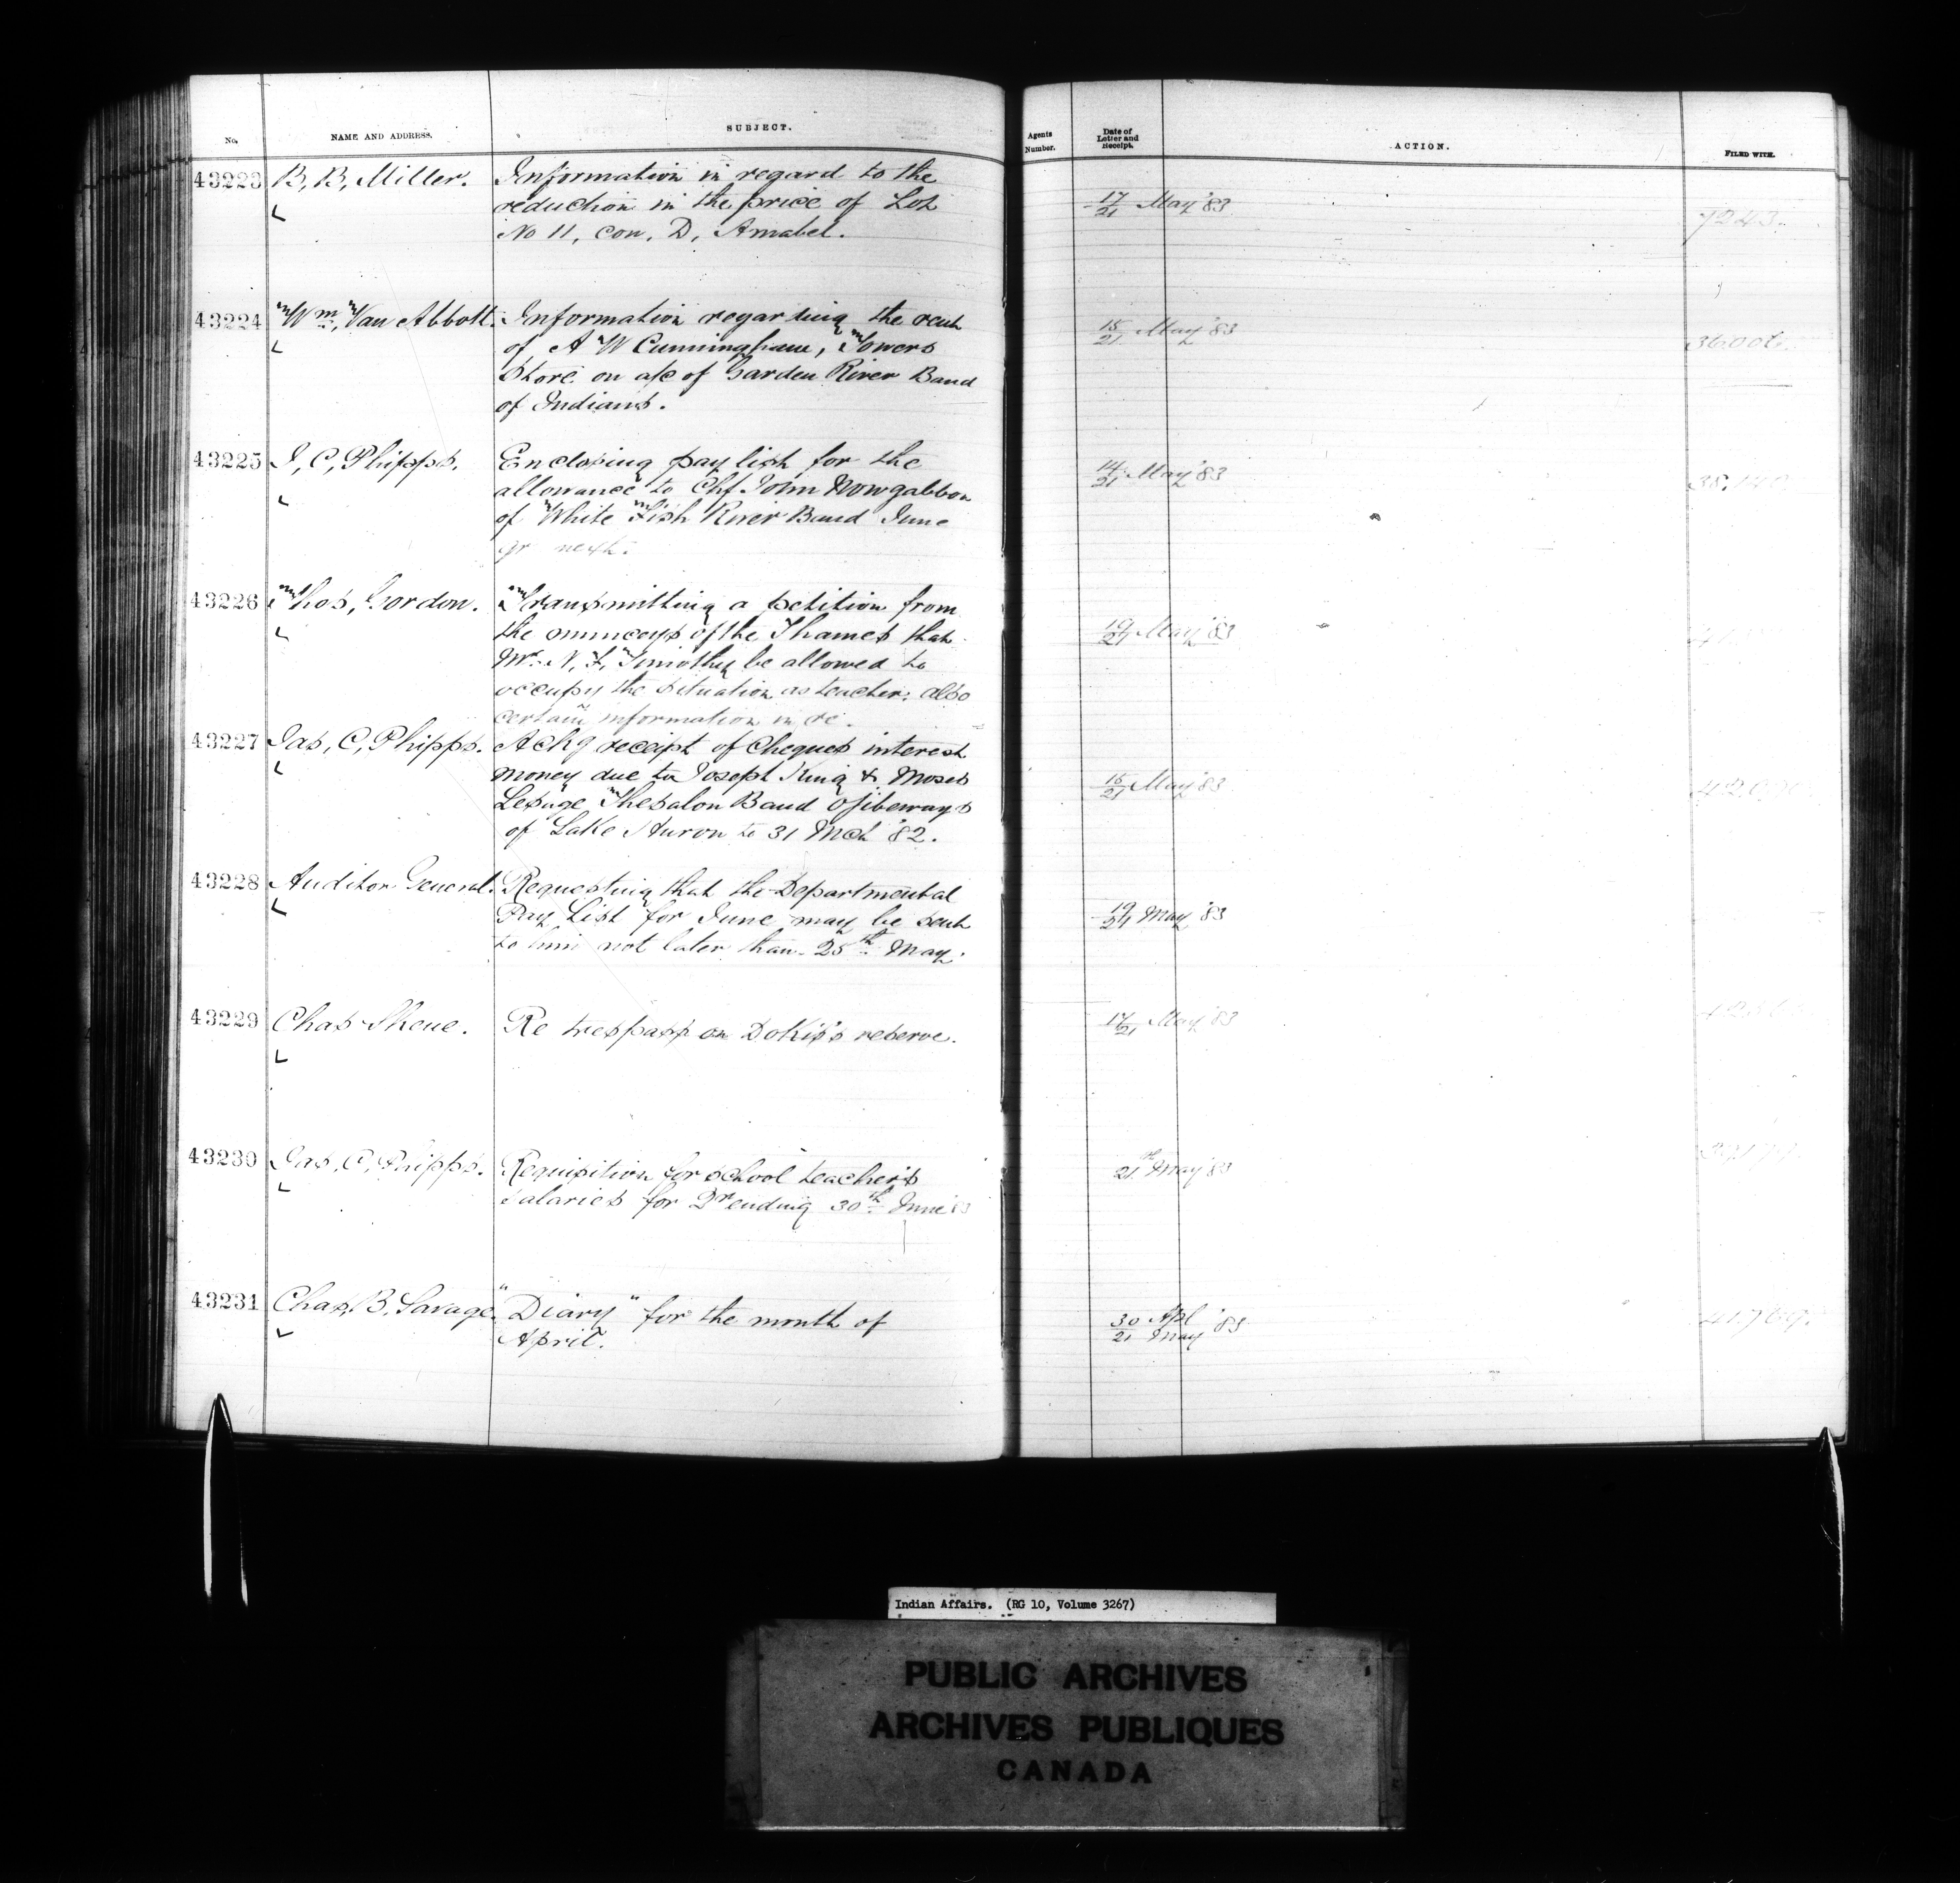 No. NAME AND ADDRESS. SUBJECT. Agents Number. Date of Letter and Receipt. ACTION. FILED WITH.
43223 B, B, Miller. Information in regard to the
reduction in the price of Lot 17/21 May '83 7243.
No 11, con. D, Amabel.
43224 Wm, Van Abbott. Information regarding the rent 15/21 May '83
of A W Cunningham, Towers
Store on a/c of Garden River Band
of Indians.
43225 J, C, Phipps. Enclosing pay list for the 14/21 May '83
allowance to Chf John Nowgabbon
of White Fish River Band June
qr next.
43226 Thos, Gordon. Transmitting a petition from
the munceys of the Thames that 19/21 May '83
Mr. N, F, Timothy be allowed to
occupy the situation as teacher. also
certain information in re.
43227 Jas, C, Phipps. Ackg receipt of Cheques interest
money due to Joseph King & Moses 15/21 May '83
Lesage Thesalon Band Ojibeways
of Lake Huron to 31 Mch '82.
43228 Auditor General. Requesting that the Departmental
Pay List for June may be sent 19/21 May '83
to him not later than 25th May.
43229 Chas Skene. Re trespass on Dokis's reserve. 17/21 May '83
43230 Jas, C, Phipps. Requisition for school teacher's 21 May '83
salaries for Qr ending 30th June 83
43231 Chas, B. Savage. "Diary" for the month of 30/21 Apl May '83
April.
Indian Affairs. (RG 10, Volume 3267)
PUBLIC ARCHIVES
ARCHIVES PUBLIQUES
CANADA